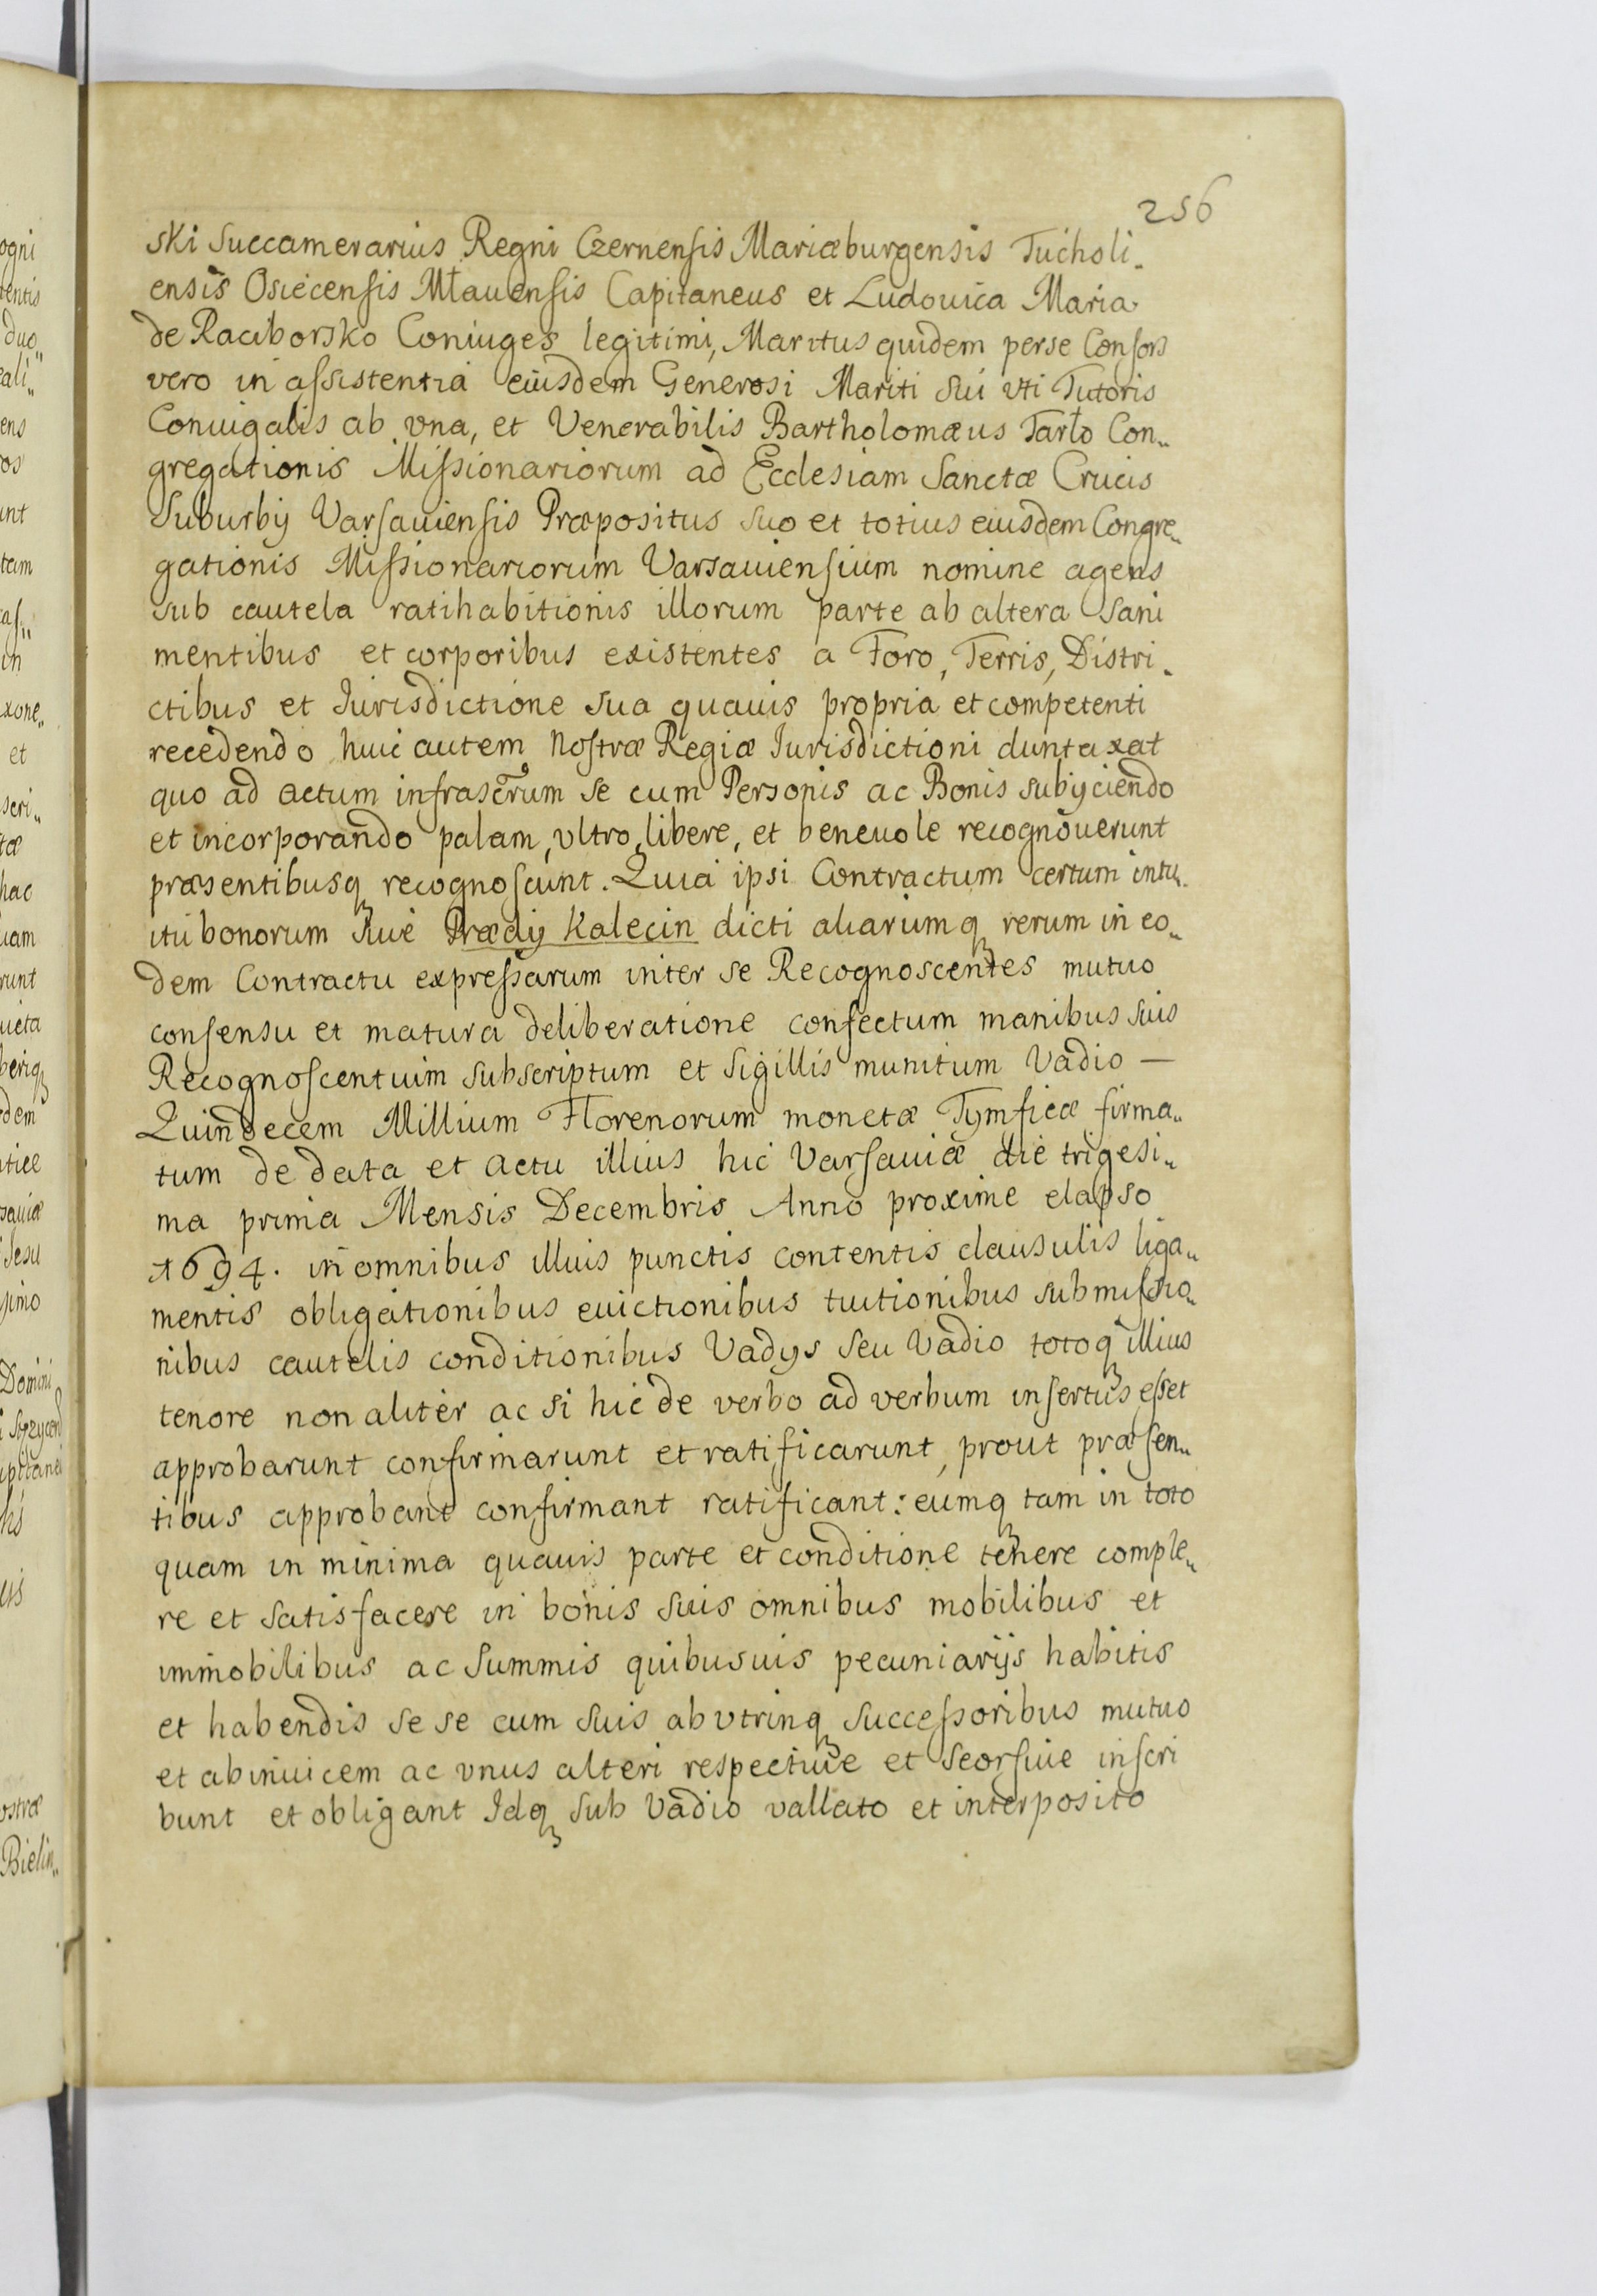 256
ski Succamerarius Regni Czernensis Mariæburgensis Tucholi„
ensis Osiecensis Młauensis Capitaneus et Ludouica Maria
de Raciborsko Coniuges legitimi, Maritus quidem perse Consors
vero in assistentia eiusdem Generosi Mariti sui vti Tutoris
Coniugalis ab vna, et Venerabilis Bartholomæus Tarło Con„
gregationis Missionariorum ad Ecclesiam Sanctæ Crucis
Suburbij Varsauiensis Præpositus suo et totius eiusdem Congre„
gationis Missionariorum Varsauiensium nomine agens
sub cautela ratihabitionis illorum parte ab altera Sani
mentibus et corporibus existentes a Foro, Terris, Distri„
ctibus et Iurisdictione sua quauis propria et competenti
recedendo huic autem Nostræ Regiæ Iurisdictioni duntaxat
quo ad actum infrascrum se cum Personis ac Bonis subijciendo
et incorporando palam, vltro, libere, et beneuole recognouerunt
præsentibusq recognoscunt. Quia ipsi Contractum certum intu„
itu bonorum siue Prædij Kalecin dicti aliarumq rerum in eo„
dem Contractu expressarum inter se Recognoscentes mutuo
consensu et matura deliberatione confectum manibus suis
Recognoscentium subscriptum et Sigillis munitum Vadio —
Quindecem Millium Florenorum monetæ Tymficæ firma„
tum de data et actu illius hic Varsauiæ die trigesi„
ma prima Mensis Decembris Anno proxime elapso
1694. in omnibus illius punctis contentis clausulis liga„
mentis obligationibus euictionibus tuitionibus submissio„
nibus cautelis conditionibus Vadys seu Vadio totoq illius
tenore non aliter ac si hic de verbo ad verbum insertus esset
approbarunt confirmarunt et ratificarunt, prout præsen„
tibus approbant confirmant ratificant: eumq tam in toto
quam in minima quauis parte et conditione tenere comple„
re et satisfacere in bonis suis omnibus mobilibus et
immobilibus ac Summis quibusuis pecuniarijs habitis
et habendis se se cum suis abvtrinq successoribus mutuo
et abinuicem ac vnus alteri respectiue et seorsiue inscri
bunt et obligant Idq sub Vadio vallato et interposito